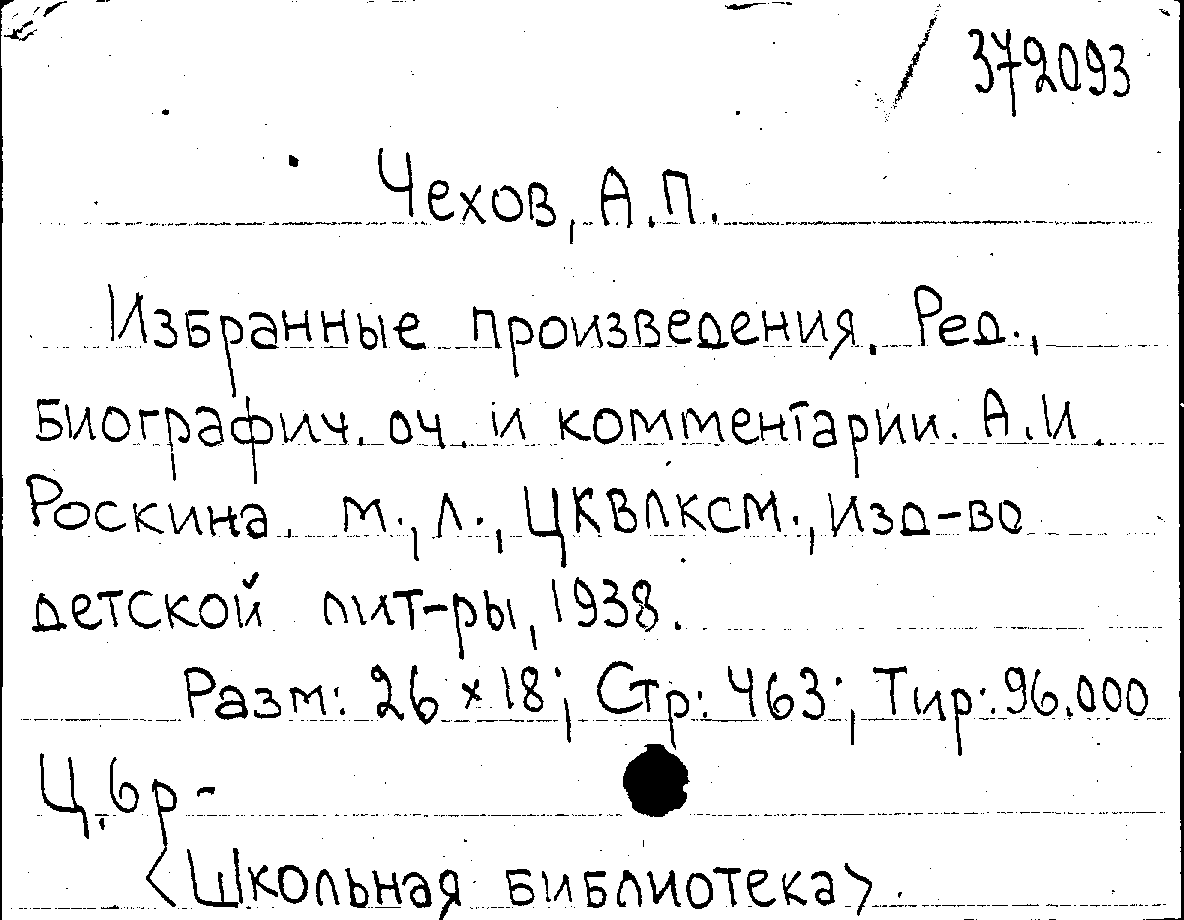 372093
Чехов, А.П.
Избранные произведения. Ред.,
биографич. оч. и комментарии. А.И.
Роскина. М., Л., ЦКВЛКСМ., Изд-во
детской лит-ры, 1938.
Разм: 26 × 18; Стр: 463; Тир: 96.000
Ц. 6р -
<Школьная библиотека>.